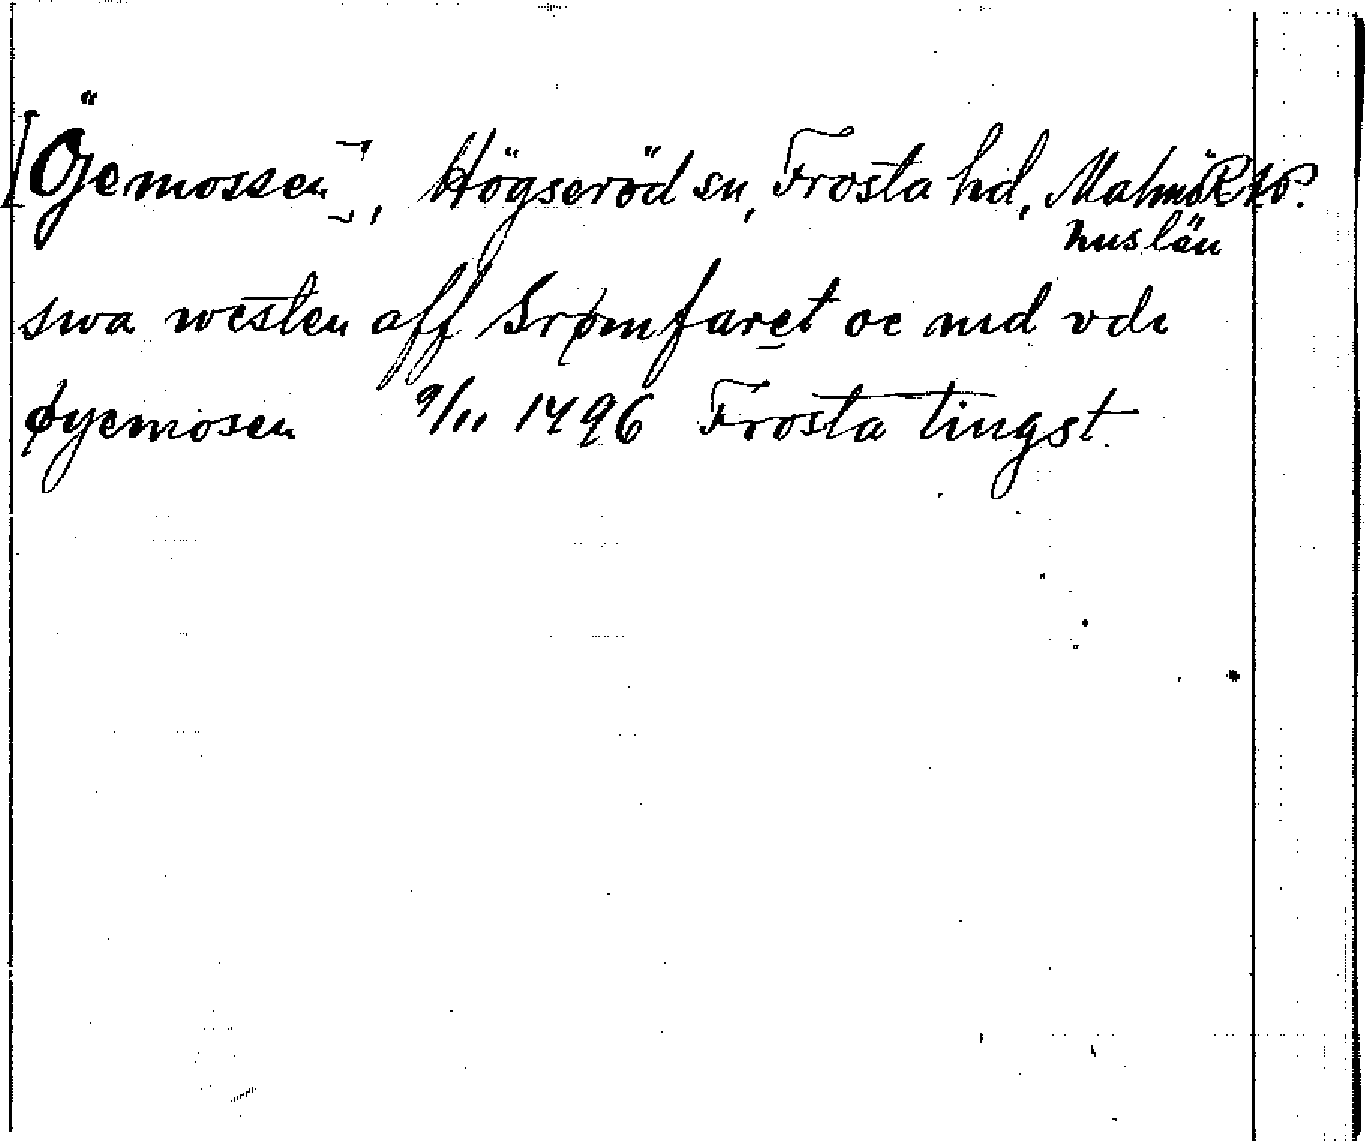 [Öjemossen], Högseröd sn, Frosta hd, Malmö
huslän
swa westen aff Srømfaret oc ned vdi
øyemosen 9/11 1496 Frosta tingst.